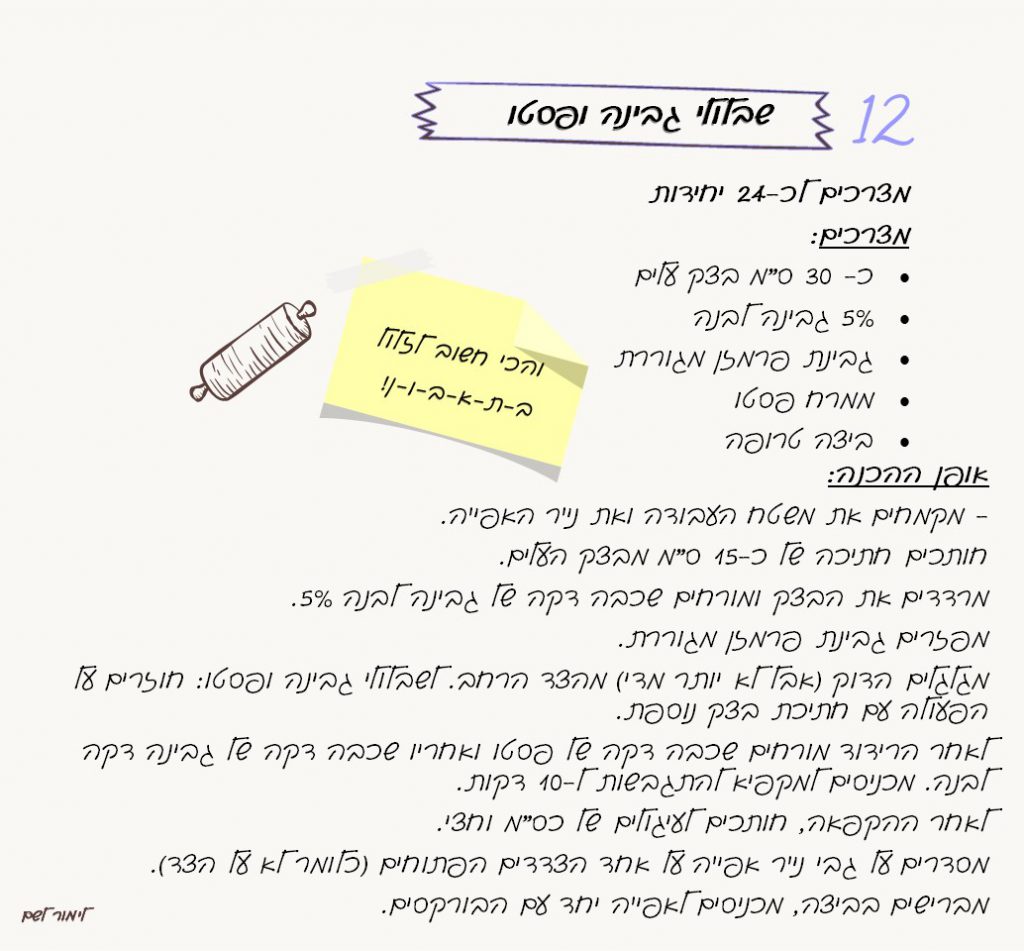 12
שבלולי גבינה ופסטו
מצרכים לכ-24 יחידות
מצרכים:
כ- 30 ס"מ בצק עלים
5% גבינה לבנה
גבינת פרמזן מגוררת
ממרח פסטו
ביצה טרופה
והכי חשוב לזלול
ב-ת-א-ב-ו-ן!
אופן ההכנה:
- מקמחים את משטח העבודה ואת נייר האפייה.
חותכים חתיכה של כ-15 ס"מ מבצק העלים.
מרדדים את הבצק ומורחים שכבה דקה של גבינה לבנה 5%.
מפזרים גבינת פרמזן מגוררת.
מגלגלים הדוק (אבל לא יותר מדי) מהצד הרחב. לשבלולי גבינה ופסטו: חוזרים על
הפעולה עם חתיכת בצק נוספת.
לאחר הרידוד מורחים שכבה דקה של פסטו ואחריו שכבה דקה של גבינה דקה
לבנה. מכניסים למקפיא להתגבשות ל-10 דקות.
לאחר ההקפאה, חותכים לעיגולים של כס"מ וחצי.
מסדרים על גבי נייר אפייה על אחד הצדדים הפתוחים (כלומר לא על הצד).
מברישים בביצה, מכניסים לאפייה יחד עם הבורקסים.
לימור לשם